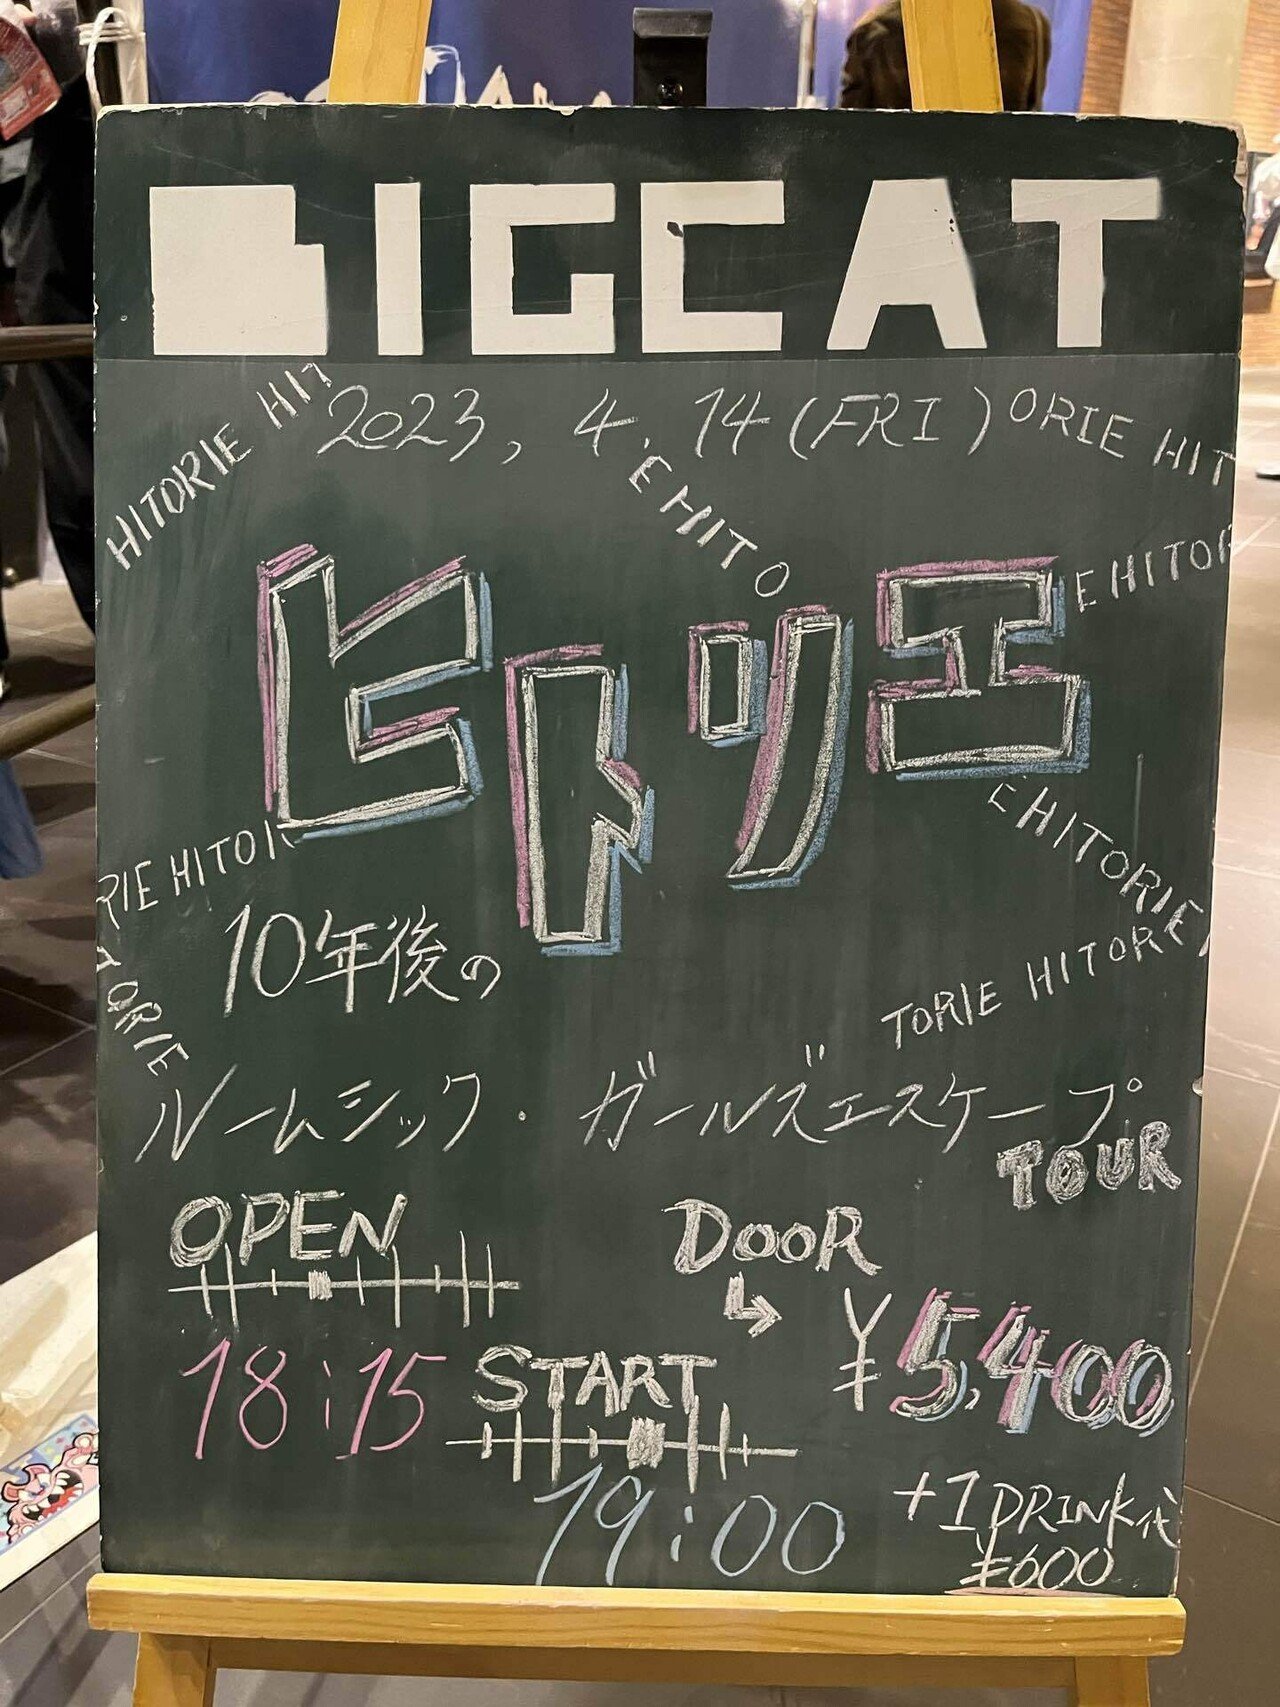 BIGCAT
HITORIE HIT
2023, 4. 14 (FRI)
ORIE HIT
E HITO
E HITOR
ヒトリエ
RIE HITOR
EHITORIE
10年後の
TORIE HITORE
TORIE
ルームシック・ガールズエスケープ
TOUR
OPEN
18:15
DOOR
¥5,400
START
19:00
+1DRINK代
¥600